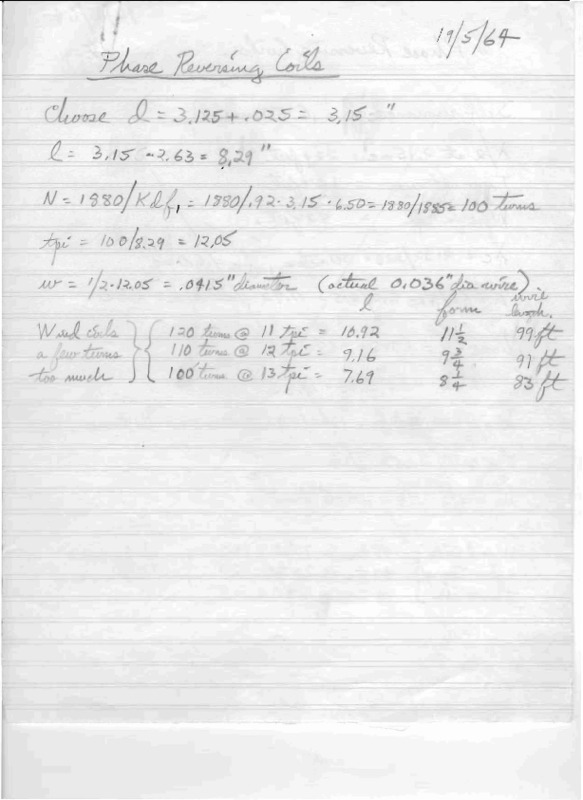 19/5/64
Phase Reversing Coils
Choose d = 3.125 + .025 = 3.15 "
l = 3.15 · 2.63 = 8.29"
N = 1880/Kdf₁ = 1880/.92 · 3.15 · 6.50 = 1880/1885 = 100 turns
tpi = 100/8.29 = 12.05
w = 1/2·12.05 = .0415" diameter (actual 0.036" dia wire)
l form wire length.
Wind coils 120 turns @ 11 tpi = 10.92 11 1/2 99 ft
a few turns 110 turns @ 12 tpi = 9.16 9 3/4 91 ft
too much 100 turns @ 13 tpi = 7.69 8 1/4 83 ft